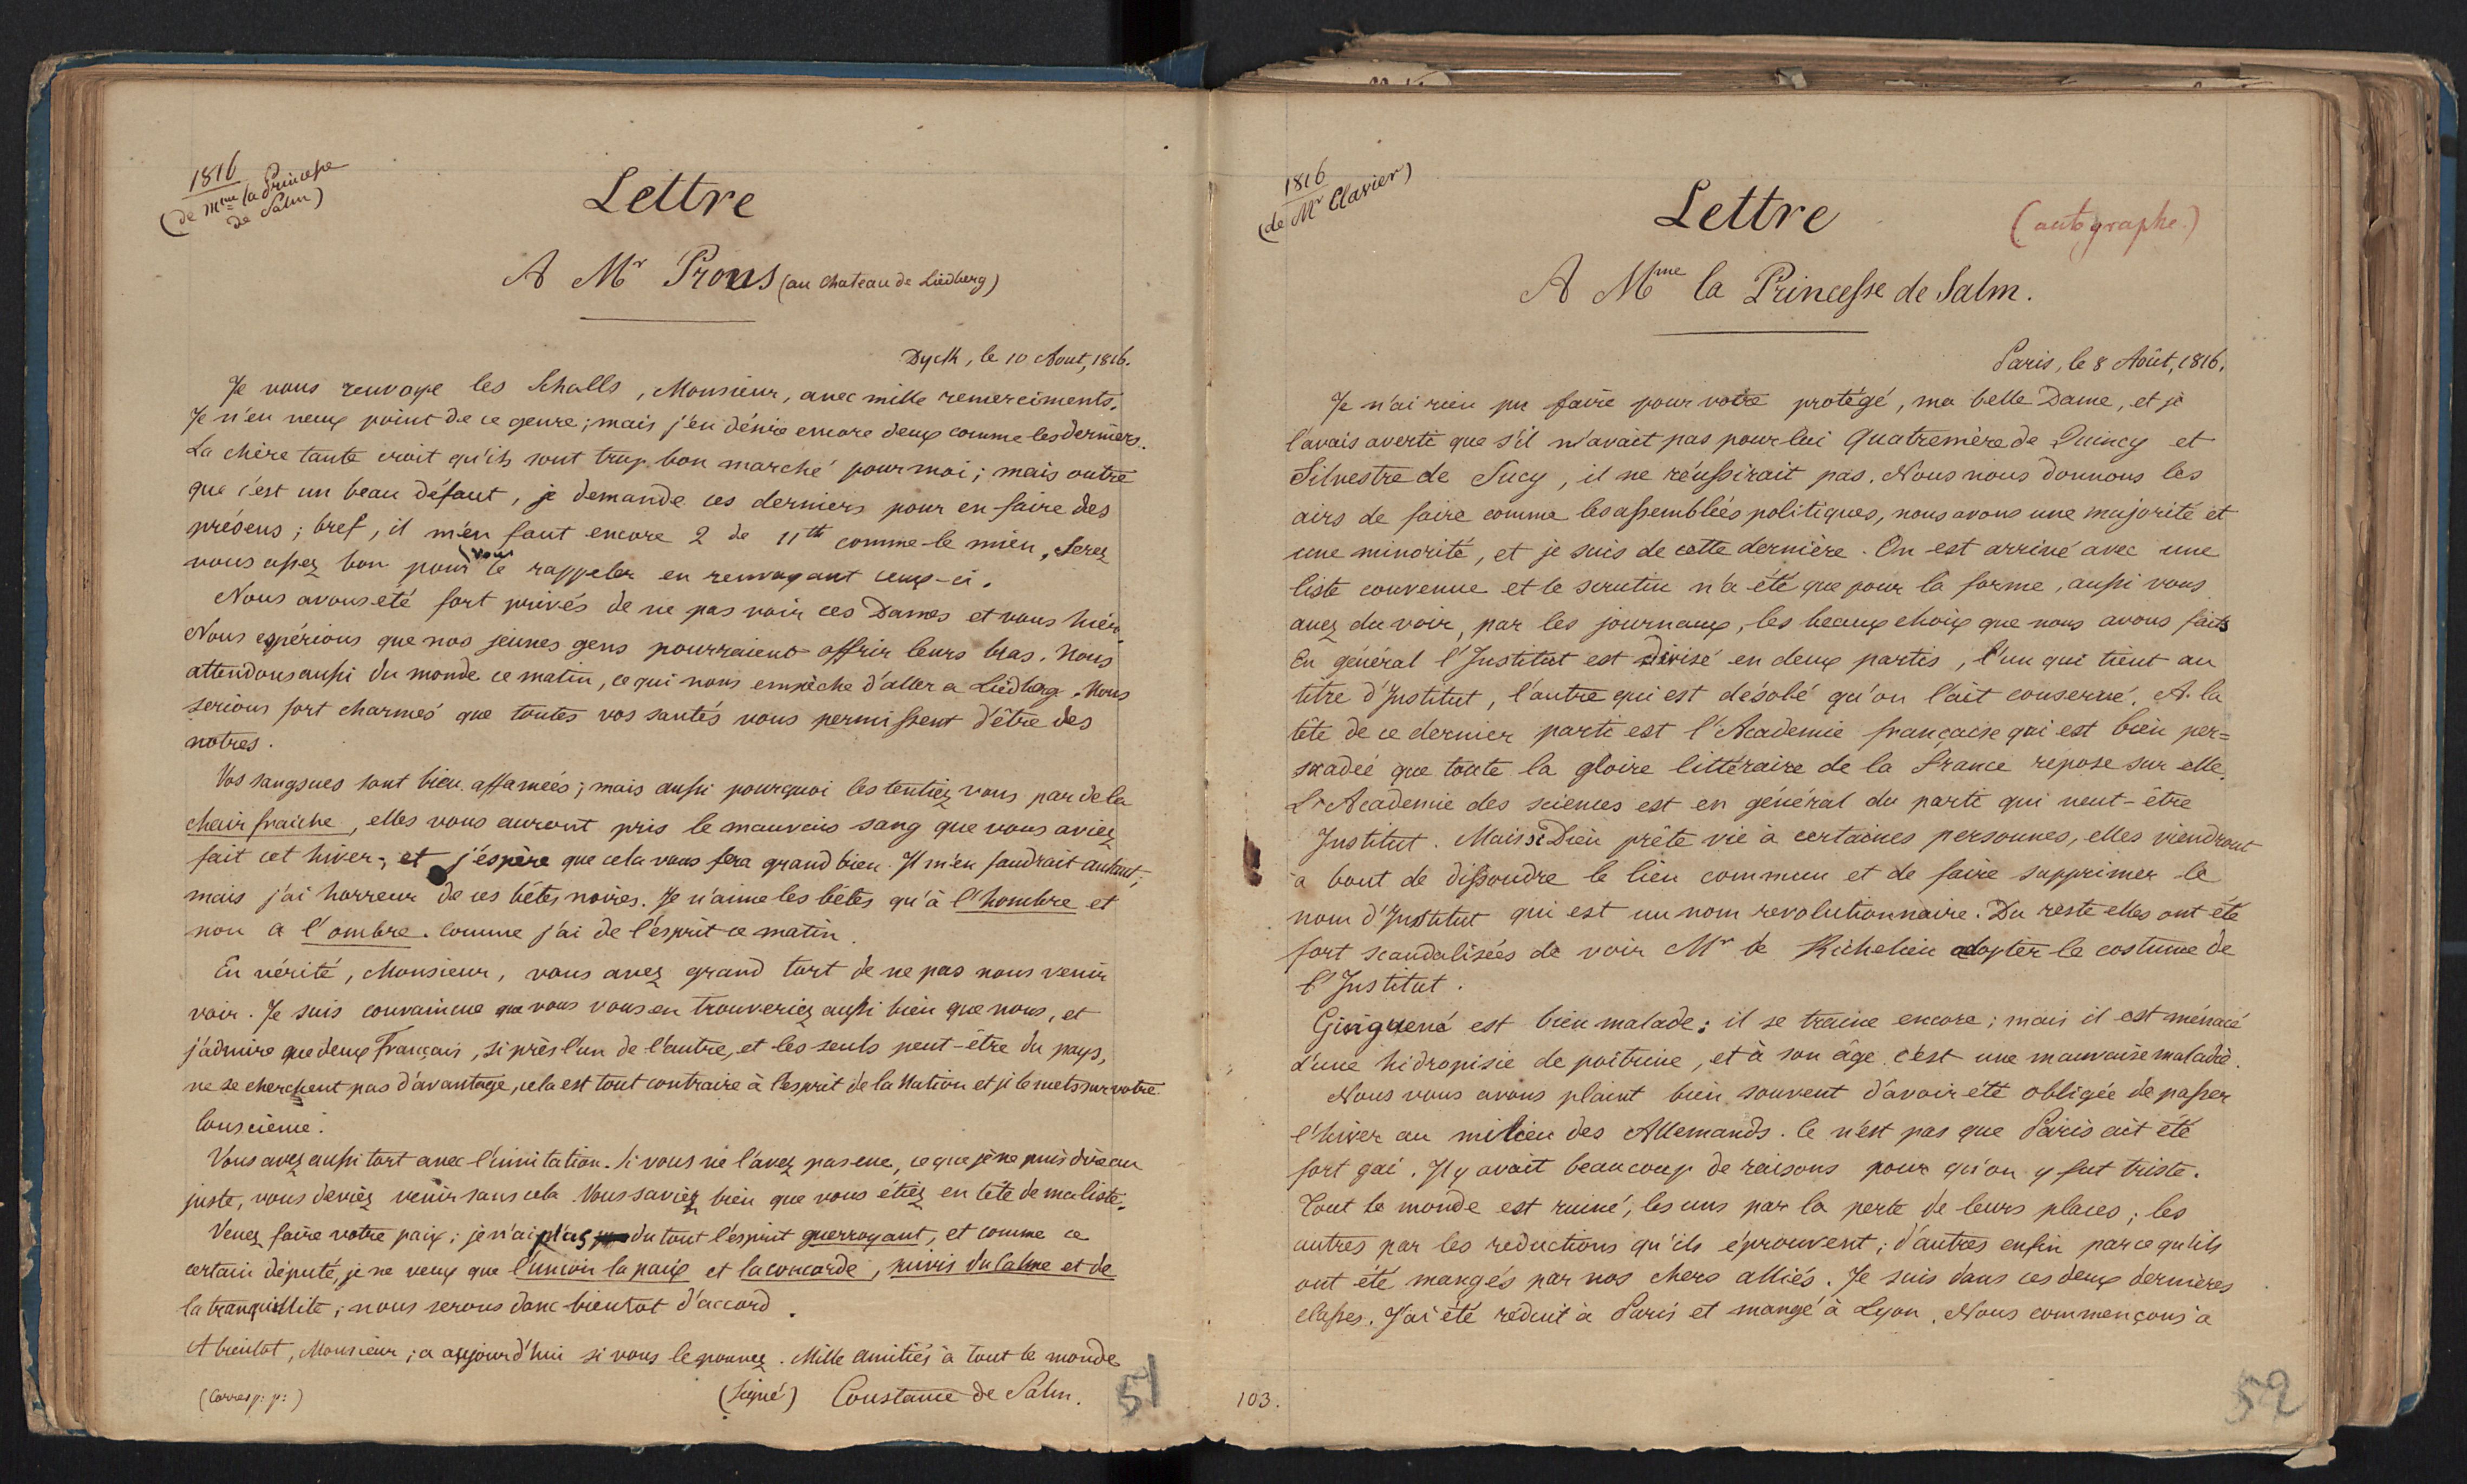 1816
(de Mme la Princesse
de Salm)
Lettre
A Mr Prous (au Chateau de Liedberg)
Dyck, le 10 Aout, 1816.
Je vous renvoye les Schalls, Monsieur, avec mille remerciments.
Je n'en veux point de ce genre; mais j'en désire encore deux comme les derniers.
La chère tante croit qu'ils sont trop bon marché pour moi; mais outre
que c'est un beau défaut, je demande ces derniers pour en faire des
présens; bref, il m'en faut encore 2 de 11th comme le mien. Serez
vous assez bon pour vous le rappeler en renvoyant ceux-ci.
Nous avons été fort privés de ne pas voir ces Dames et vous hier.
Nous espérions que nos jeunes gens pourraient offrir leurs bras. Nous
attendons aussi du monde ce matin, ce qui nous empèche d'aller a Liedberg. Nous
serions fort charmés que toutes vos santés vous permissent d'être des
notres.
Vos sangsues sont bien affamées; mais aussi pourquoi les tentiez vous par de la
chair fraiche, elles vous auront pris le mauvais sang que vous aviez
fait cet hiver, et j'espère que cela vous fera grand bien. Il m'en faudrait autant;
mais j'ai horreur de ces bêtes noires. Je n'aime les bêtes qu'à l'hombre et
non a l'ombre. Comme j'ai de l'esprit ce matin.
En vérité, Monsieur, vous avez grand tort de ne pas nous venir
voir. Je suis convaincue que vous vous en trouveriez aussi bien que nous, et
j'admire que deux Français, si près l'un de l'autre, et les seuls peut-être du pays,
ne se cherchent pas d'avantage, cela est tout contraire à l'esprit de la Nation et je le mets sur votre
Conscience.
Vous avez aussi tort avec l'invitation. Si vous ne l'avez pas eue, ce que je ne puis dire au
juste, vous deviez venir sans cela. Vous saviez bien que vous étiez en tête de ma liste.
Venez faire votre paix; je n'ai pas du tout l'esprit guerroyant, et comme ce
certain député, je ne veux que l'union la paix et la concorde, suivis du calme et de
la tranquillité; nous serons donc bientot d'accord.
A bientot, Monsieur; a aujourd'hui si vous le pouvez. Mille amitiés à tout le monde
(Corresp: p:) (Signé) Constance de Salm.
51
1816
(de Mr Clavier)
Lettre
(autographe.)
A Mme la Princesse de Salm.
Paris, le 8 Août, 1816.
Je n'ai rien pu faire pour votre protégé, ma belle Dame, et je
l'avais averti que s'il n'avait pas pour lui Quatremère de Quincy et
Silvestre de Sacy, il ne réussirait pas. Nous nous donnons les
airs de faire comme les assemblées politiques, nous avons une majorité et
une minorité, et je suis de cette dernière. On est arrivé avec une
liste convenue et le scrutin n'a été que pour la forme, aussi vous
avez du voir, par les journaux, les beaux choix que nous avons faits
En général l'Institut est divisé en deux partis, l'un qui tient au
titre d'Institut, l'autre qui est désolé qu'on l'ait conservé. A la
tête de ce dernier parti est l'Academie française qui est bien per=
suadée que toute la gloire littéraire de la France repose sur elle.
L'Academie des sciences est en général du parti qui veut-être
Institut. Mais si Dieu prête vie à certaines personnes, elles viendront
à bout de dissoudre le lien commun et de faire supprimer le
nom d'Institut qui est un nom revolutionnaire. Du reste elles ont été
fort scandalisées de voir Mr de Richelieu adopter le costume de
l'Institut.
Ginguené est bien malade; il se traine encore; mais il est ménacé
d'une hidropisie de poitrine, et à son âge c'est une mauvaise maladie.
Nous vous avons plaint bien souvent d'avoir été obligée de passer
l'hiver au milieu des Allemands. Ce n'est pas que Paris ait été
fort gai. Il y avait beaucoup de raisons pour qu'on y fut triste.
Tout le monde est ruiné; les uns par la perte de leurs places; les
autres par les reductions qu'ils éprouvent; d'autres enfin parce qu'ils
ont été mangés par nos chers alliés. Je suis dans ces deux dernières
classes. J'ai été réduit à Paris et mangé à Lyon. Nous commençons à
103.
52